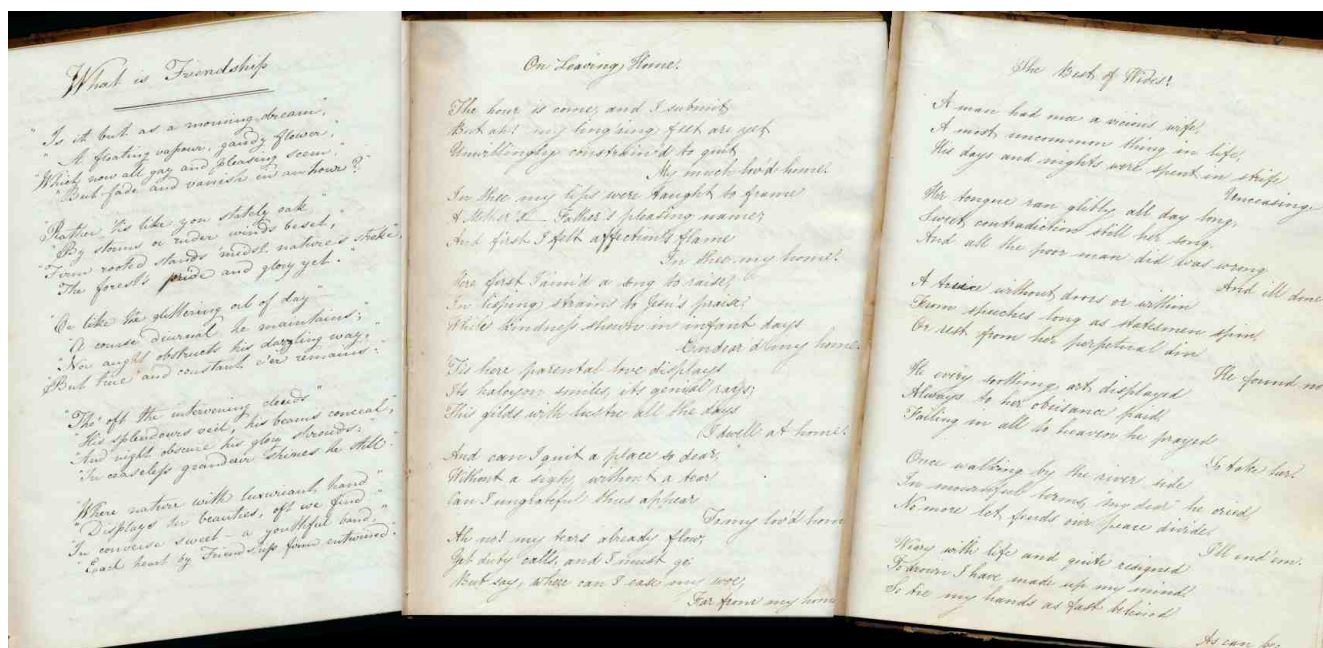 What is Friendship
"Is it but as a morning dream,"
"A floating vapour, gaudy flower,"
"Which now all gay and pleasing seem"
"But fade and vanish in an hour?"
"Rather 'tis like yon stately oak"
"By storms or ruder winds beset,"
"Firm rooted stands 'midst nature's stroke,"
"The forest's pride and glory yet."
"Or like the glittering orb of day"
"A course diurnal he maintains;"
"Nor aught obstructs his dazzling way,"
"But true and constant e'er remains."
"Tho' oft the intervening clouds"
"His splendours veil, his beams conceal,"
"And night obscure his glory shrouds:"
"In ceaseless grandeur shines he still."
"Where nature with luxuriant hand"
"Displays her beauties, oft we find"
"In converse sweet – a youthful band,"
"Each heart by Friendship firm entwined."
On Leaving Home.
The hour is come, and I submit,
But ah! my ling'ring feet are yet
Unwillingly constrain'd to quit
My much lov'd home.
In thee my lips were taught to frame
A Mother's – Father's pleasing name,
And first I felt affection's flame
In thee, my home!
Here first I aim'd a song to raise,
In lisping strains to Jesu's praise,
While kindness shewn in infant days
Endear'd my home.
'Tis here parental love displays
Its halcyon smiles, its genial rays;
This gilds with lustre all the days
I dwell at home.
And can I quit a place so dear,
Without a sigh, without a tear
Can I ungrateful thus appear
To my lov'd hom
Ah no! my tears already flow,
Yet duty calls, and I must go
But say, where can I ease my woe,
Far from my home
The Best of Wives!
A man had once a vicious wife,
A most uncommon thing in life,
His days and nights were spent in strife
Unceasing.
Her tongue ran glibly all day long,
Sweet contradiction still her song,
And all the poor man did was wrong
And ill done
A truce without doors or within
From speeches long as statesmen spin
Or rest from her perpetual din
He found no
He every soothing art displayed
Always to her obeisance paid
Failing in all to heaven he prayed
To take her.
Once walking by the river side
In mournful terms, "my dear" he cried,
No more let feuds our peace divide
I'll end 'em.
Weary with life and quite resigned
To drown I have made up my mind
So tie my hands as fast behind
As can be.